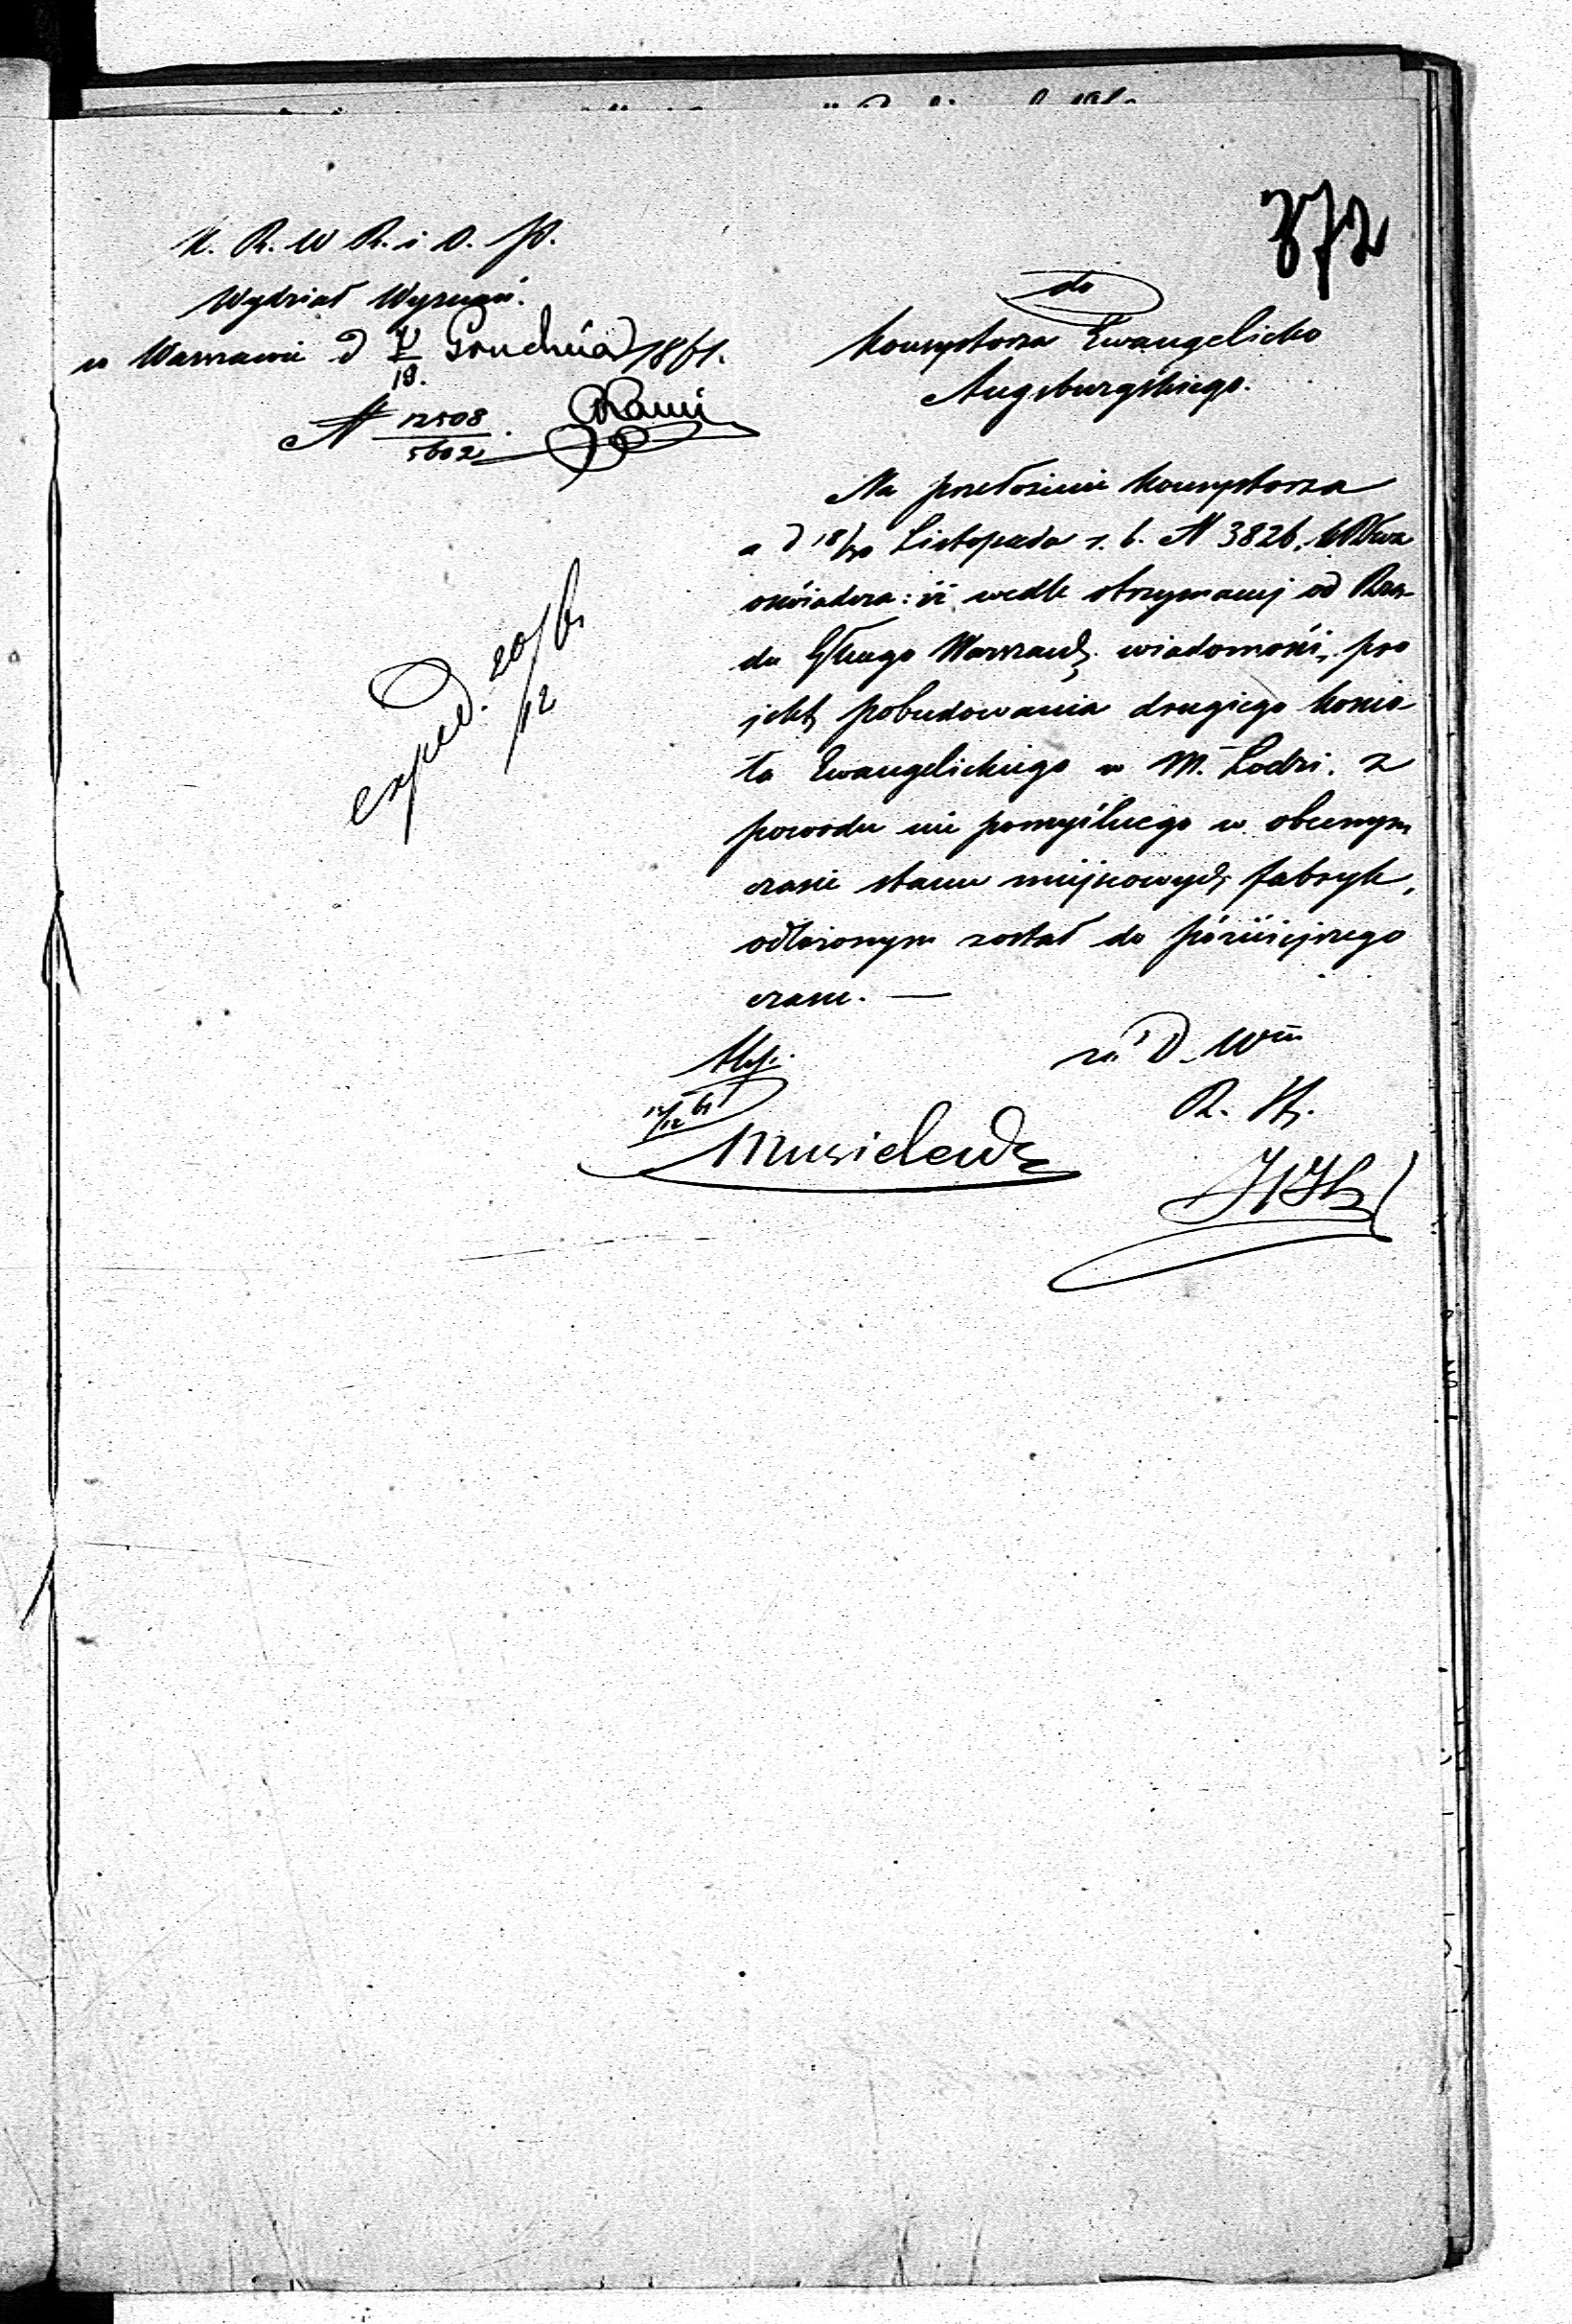 372
K. R. W R. i O. P.
Wydział Wyznań.
w Warszawie d 7/19. Grudnia 1861.
N 12508/5602.
do
Konsystorza Ewangelicko
Augsburgskiego.
Na przełożenie Konsystorza
z d 18/30 Listopada r. b. N 3826,
oświadcza: iż wedle otrzymanej od Rzą-
du Głnego Warszawsk. wiadomości, pro
jekt pobudowania drugiego Kościo
ła Ewangelickiego w M. Łodzi. z
powodu nie pomyślnego w obecnym
czasie stanu miejscowych fabryk,
odłożonym został do późniejszego
czasu. —
exped. 20/12 61
za D. Włu
R. St.
12/12 61